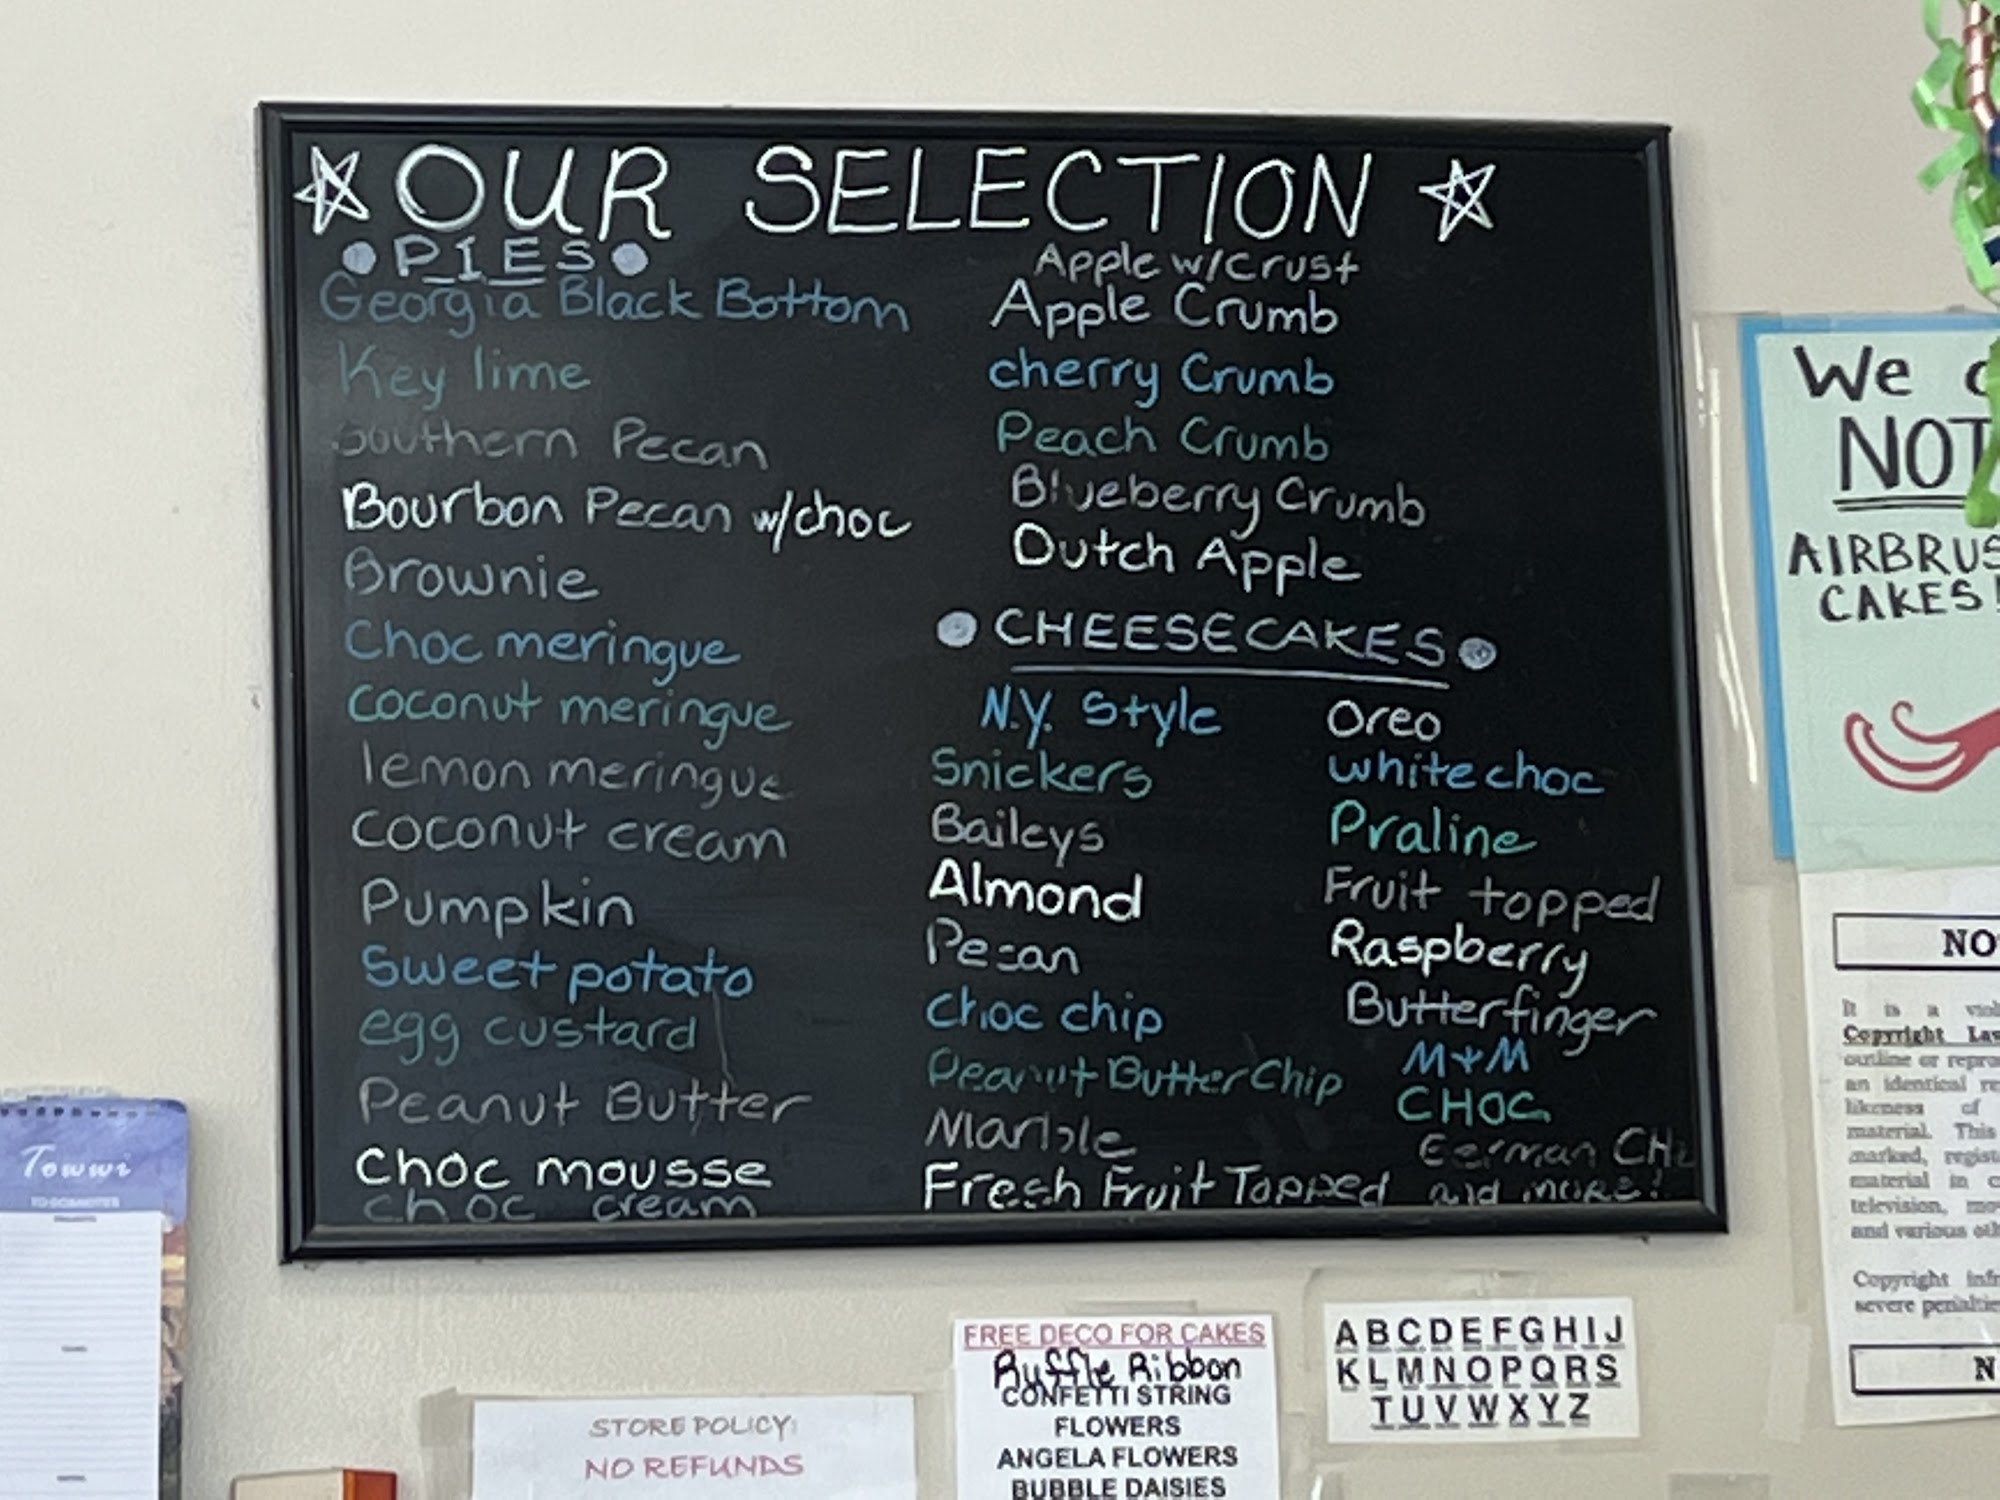 OUR SELECTION
PIES
Georgia Black Bottom
Key lime
Southern Pecan
Bourbon Pecan w/choc
Brownie
Choc meringue
coconut meringue
lemon meringue
Coconut cream
Pumpkin
Sweet potato
egg custard
Peanut Butter
Choc mousse
choc cream
Apple w/crust
Apple Crumb
cherry Crumb
Peach Crumb
Blueberry Crumb
Dutch Apple
CHEESECAKES
N.Y. Style
Snickers
Baileys
Almond
Pecan
Choc chip
Peanut Butter Chip
Marble
Fresh Fruit Topped
Oreo
white choc
Praline
Fruit topped
Raspberry
Butterfinger
M+M
CHOC
German CH
and more!
We
NOT
AIRBRUS
CAKES!
NO
It is a
Copyright Law
outline or repro
an identical re
likeness of
material. This
marked, regist
material in c
television, mo
and various oth
Copyright infr
severe penaltie
N
Towwi
STORE POLICY:
NO REFUNDS
FREE DECO FOR CAKES
Ruffle Ribbon
CONFETTI STRING
FLOWERS
ANGELA FLOWERS
BUBBLE DAISIES
ABCDEFGHIJ
KLMNOPQRS
TUVWXYZ